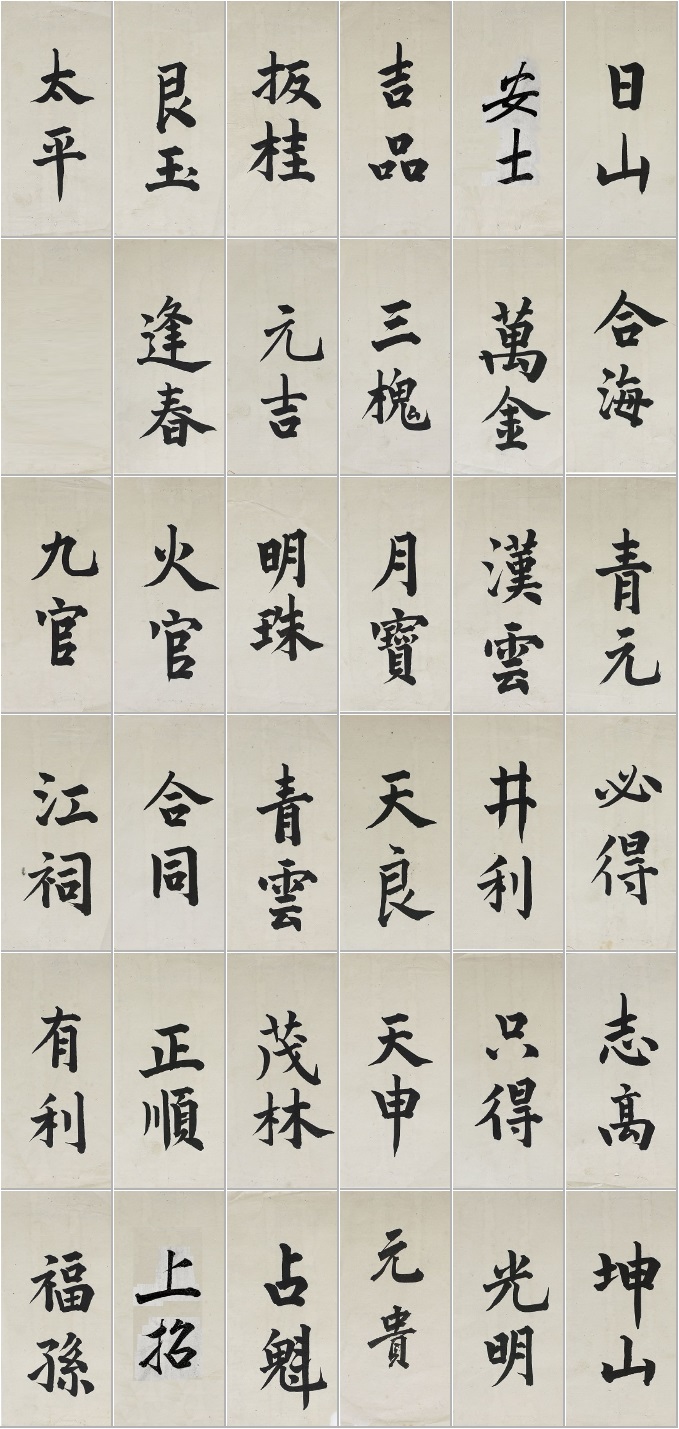 日山
安士
吉品
扳桂
艮玉
太平
合海
萬金
三槐
元吉
逢春
青元
漢雲
月寶
明珠
火官
九官
必得
井利
天良
青雲
合同
江祠
志高
只得
天申
茂林
正順
有利
坤山
光明
元貴
占魁
上招
福孫